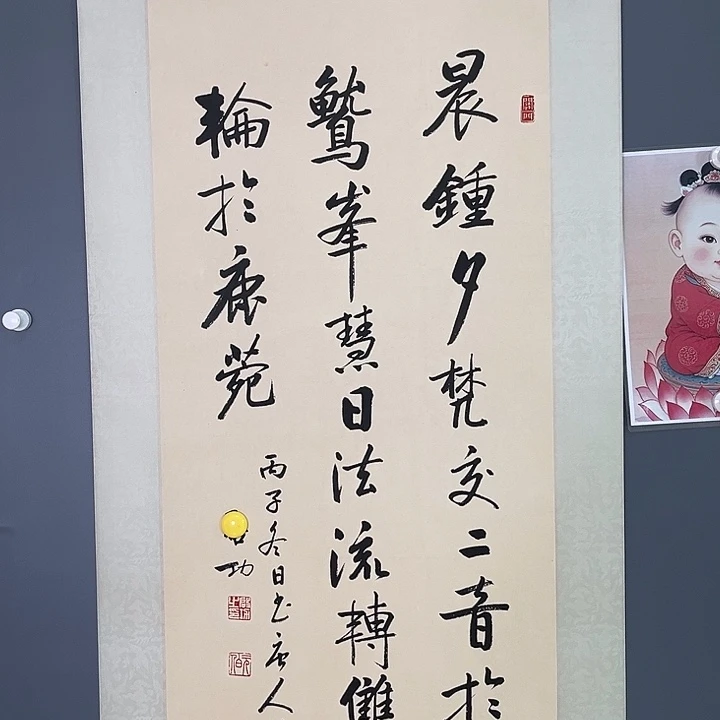 晨鍾夕梵交二音於
鷲峯慧日法流轉雙
輪於鹿菀
丙子冬日書唐人
功